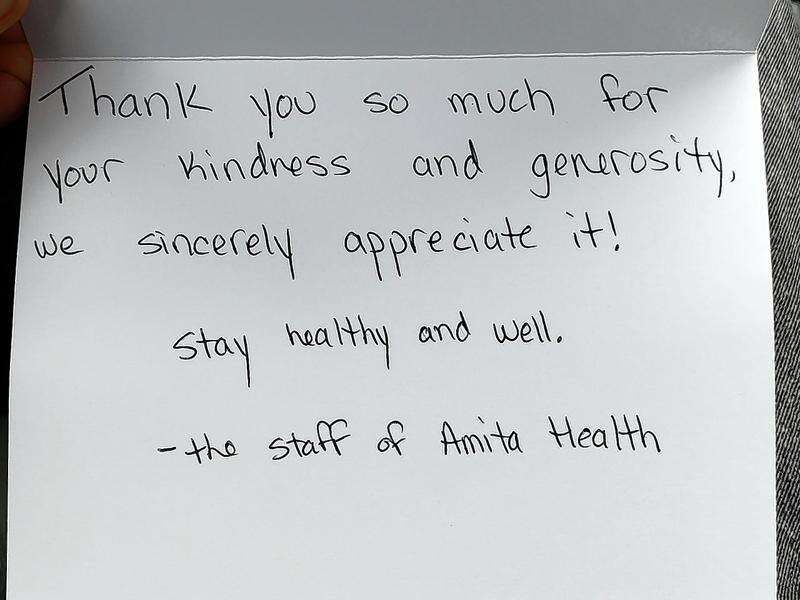 Thank you so much for
your kindness and generosity,
we sincerely appreciate it!
Stay healthy and well.
- the staff of Amita Health